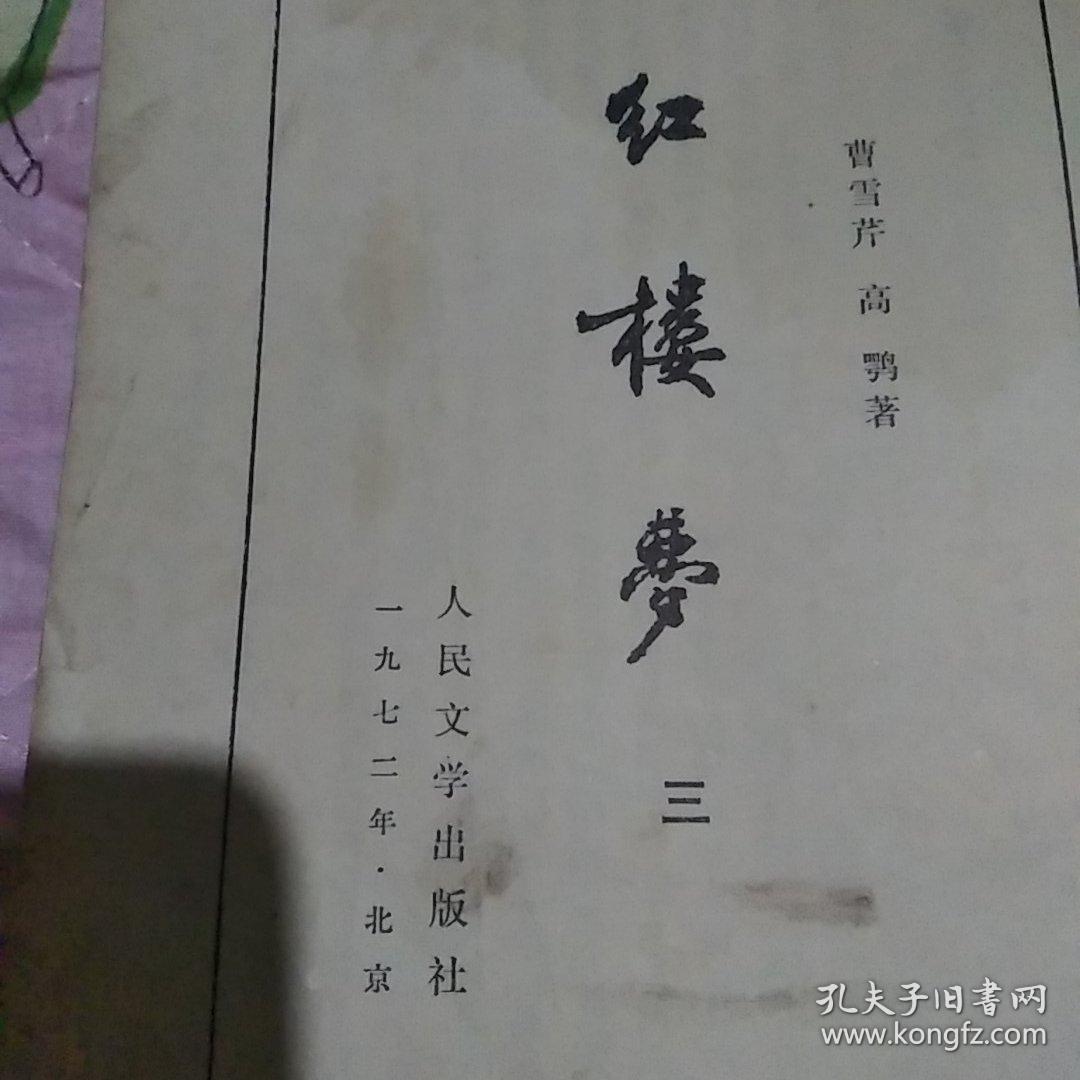 曹雪芹 高 鹗著
红楼夢 三
人民文学出版社
一九七二年·北京
孔夫子旧書网
www.kongfz.com